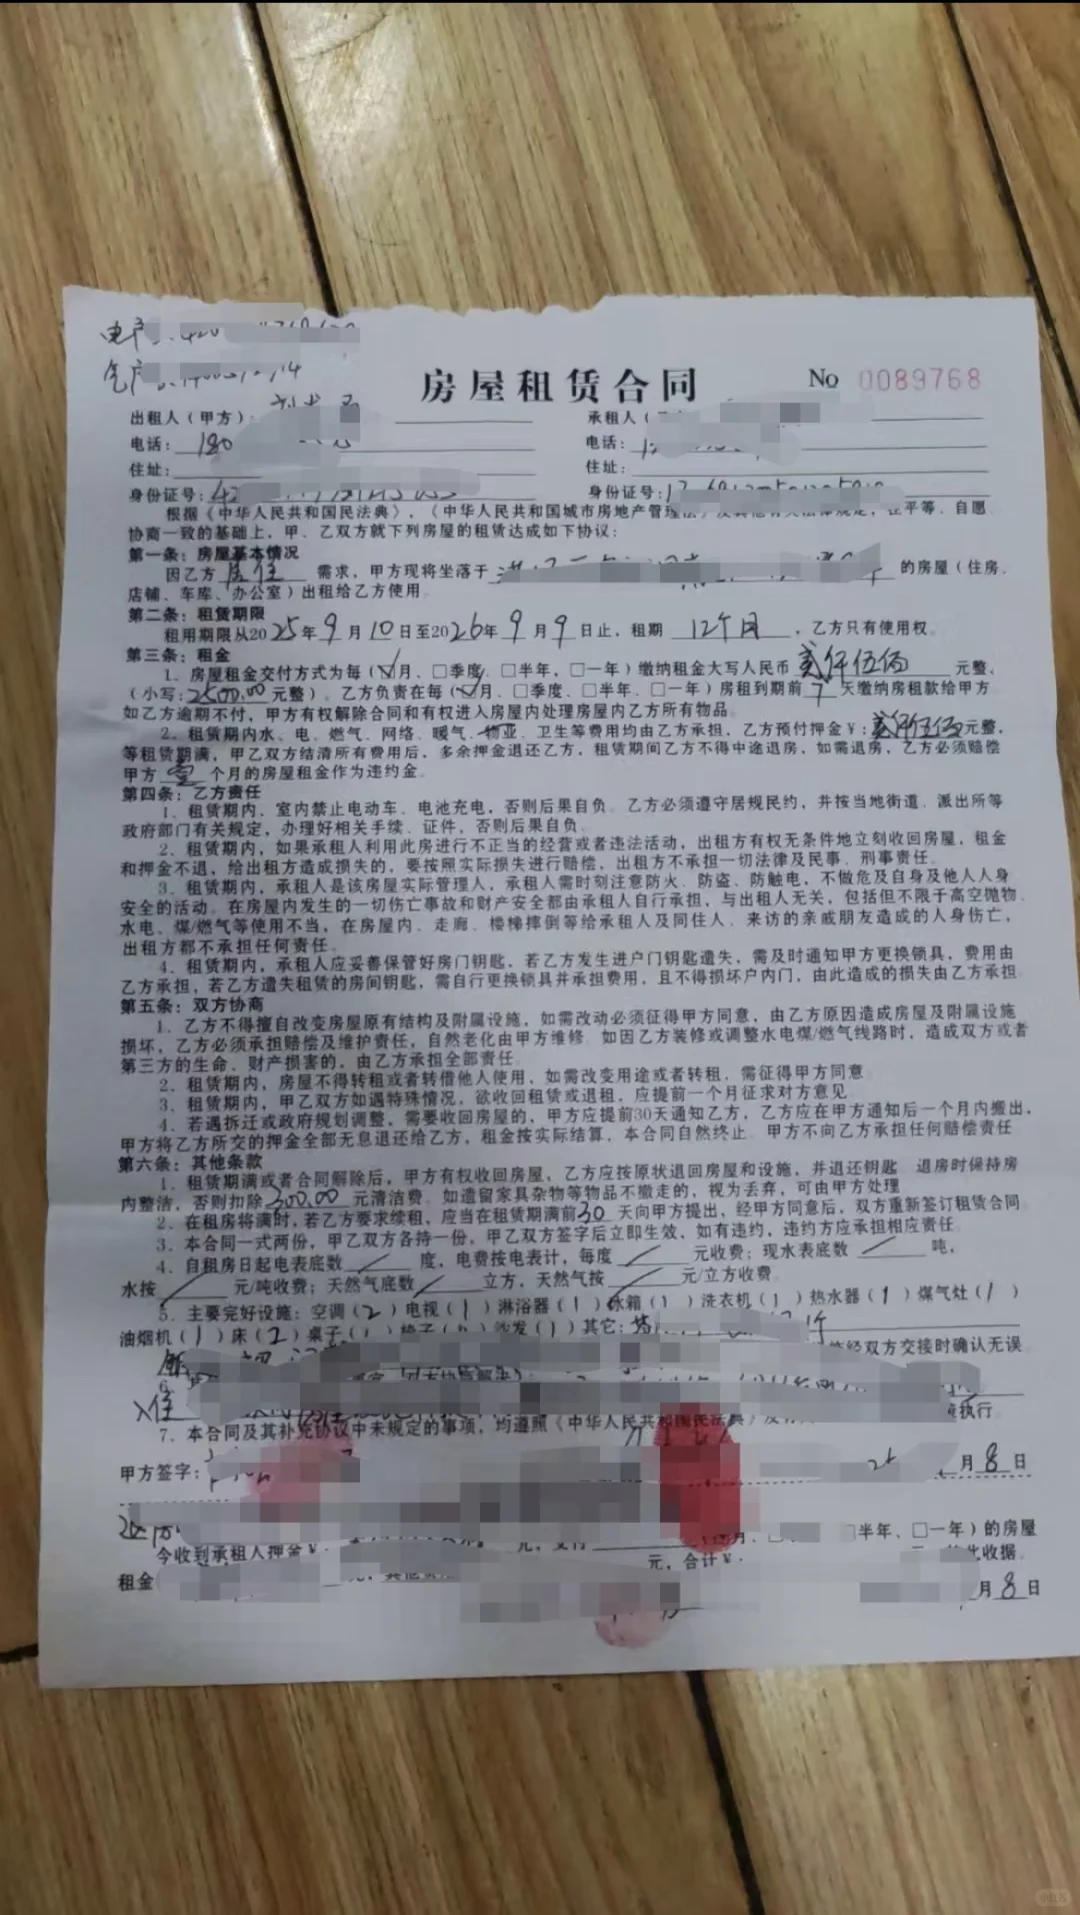 电户
气户
房屋租赁合同 No 0089768
出租人(甲方): 承租人(
电话: 180 电话:
住址: 住址:
身份证号: 身份证号:
根据《中华人民共和国民法典》,《中华人民共和国城市房地产管理法》及其他有关法律规定,在平等、自愿、
协商一致的基础上,甲、乙双方就下列房屋的租赁达成如下协议:
第一条:房屋基本情况
因乙方 居住 需求,甲方现将坐落于 的房屋(住房、
店铺、车库、办公室)出租给乙方使用。
第二条:租赁期限
租用期限从2025年9月10日至2026年9月9日止,租期 12个月 ,乙方只有使用权。
第三条:租金
1. 房屋租金交付方式为每(☑月、□季度、□半年、□一年)缴纳租金大写人民币 贰仟伍佰 元整。
(小写:2500.00元整)。乙方负责在每(☑月、□季度、□半年、□一年)房租到期前 7 天缴纳房租款给甲方。
如乙方逾期不付,甲方有权解除合同和有权进入房屋内处理房屋内乙方所有物品。
2. 租赁期内水、电、燃气、网络、暖气、物业、卫生等费用均由乙方承担,乙方预付押金¥:贰仟伍佰元整,
等租赁期满,甲乙双方结清所有费用后,多余押金退还乙方,租赁期间乙方不得中途退房,如需退房,乙方必须赔偿
甲方 壹 个月的房屋租金作为违约金。
第四条:乙方责任
1. 租赁期内,室内禁止电动车、电池充电,否则后果自负。乙方必须遵守居规民约,并按当地街道、派出所等
政府部门有关规定,办理好相关手续、证件,否则后果自负。
2. 租赁期内,如果承租人利用此房进行不正当的经营或者违法活动,出租方有权无条件地立刻收回房屋,租金
和押金不退,给出租方造成损失的,要按照实际损失进行赔偿,出租方不承担一切法律及民事、刑事责任。
3. 租赁期内,承租人是该房屋实际管理人,承租人需时刻注意防火、防盗、防触电,不做危及自身及他人人身
安全的活动。在房屋内发生的一切伤亡事故和财产安全都由承租人自行承担,与出租人无关,包括但不限于高空抛物、
水电、煤/燃气等使用不当,在房屋内、走廊、楼梯摔倒等给承租人及同住人、来访的亲戚朋友造成的人身伤亡,
出租方都不承担任何责任。
4. 租赁期内,承租人应妥善保管好房门钥匙,若乙方发生进户门钥匙遗失,需及时通知甲方更换锁具,费用由
乙方承担,若乙方遗失租赁的房间钥匙,需自行更换锁具并承担费用,且不得损坏户内门,由此造成的损失由乙方承担
第五条:双方协商
1. 乙方不得擅自改变房屋原有结构及附属设施,如需改动必须征得甲方同意,由乙方原因造成房屋及附属设施
损坏,乙方必须承担赔偿及维护责任,自然老化由甲方维修。如因乙方装修或调整水电煤/燃气线路时,造成双方或者
第三方的生命、财产损害的,由乙方承担全部责任。
2. 租赁期内,房屋不得转租或者转借他人使用,如需改变用途或者转租,需征得甲方同意
3. 租赁期内,甲乙双方如遇特殊情况,欲收回租赁或退租,应提前一个月征求对方意见
4. 若遇拆迁或政府规划调整,需要收回房屋的,甲方应提前30天通知乙方,乙方应在甲方通知后一个月内搬出,
甲方将乙方所交的押金全部无息退还给乙方,租金按实际结算,本合同自然终止,甲方不向乙方承担任何赔偿责任
第六条:其他条款
1. 租赁期满或者合同解除后,甲方有权收回房屋,乙方应按原状退回房屋和设施,并退还钥匙,退房时保持房
内整洁,否则扣除 300.00 元清洁费。如遗留家具杂物等物品不撤走的,视为丢弃,可由甲方处理
2. 在租房将满时,若乙方要求续租,应当在租赁期满前30天向甲方提出,经甲方同意后,双方重新签订租赁合同
3. 本合同一式两份,甲乙双方各持一份,甲乙双方签字后立即生效,如有违约,违约方应承担相应责任。
4. 自租房日起电表底数 / 度,电费按电表计,每度 / 元收费;现水表底数 / 吨,
水按 / 元/吨收费;天然气底数 / 立方,天然气按 / 元/立方收费。
5. 主要完好设施:空调(2)电视(1)淋浴器(1)冰箱(1)洗衣机(1)热水器(1)煤气灶(1)
油烟机(1)床(2)桌子( 沙发(1)其它:
经双方交接时确认无误
6.
住 执行
7. 本合同及其补充协议中未规定的事项,均遵照《中华人民共和国民法典》
甲方签字: 月8日
半年、□一年)的房屋
今收到承租人押金¥: 元, 元,合计¥: 此收据。
租金 月8日